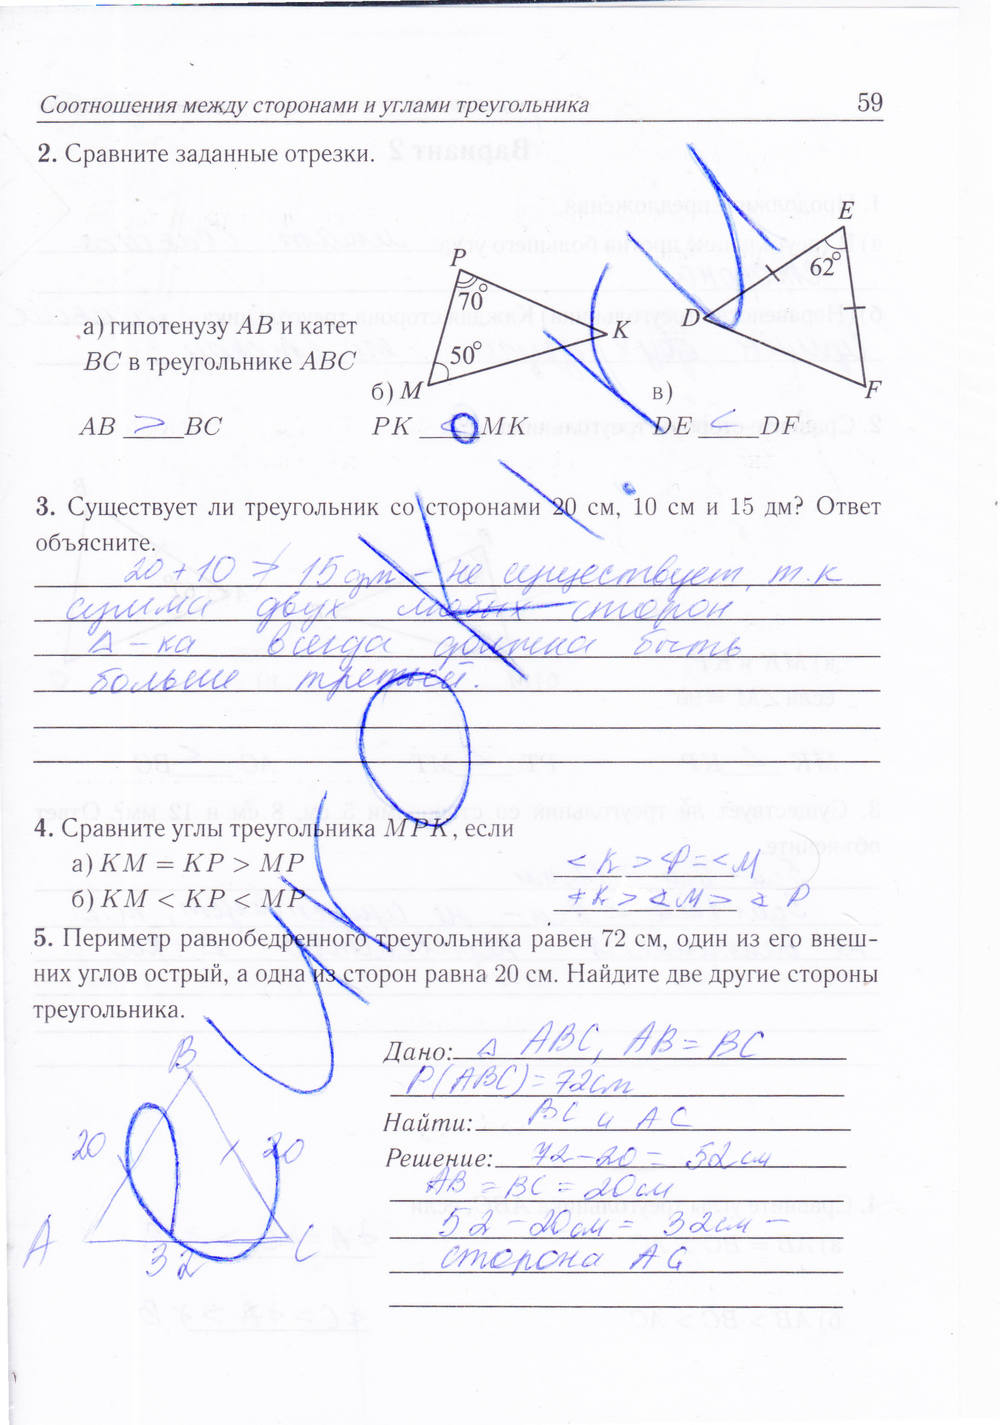 Соотношения между сторонами и углами треугольника 59
2. Сравните заданные отрезки.
а) гипотенузу AB и катет
BC в треугольнике ABC
P
70°
K
50°
б) M
E
62°
D
в)
F
AB > BC PK < MK DE < DF
3. Существует ли треугольник со сторонами 20 см, 10 см и 15 дм? Ответ
объясните.
20 + 10 ≯ 15 дм – не существует, т.к
сумма двух любых сторон
Δ-ка всегда должна быть
больше третьей.
4. Сравните углы треугольника MPK, если
а) KM = KP > MP < K > <P = <M
б) KM < KP < MP ∢K > ∢M > ∢P
5. Периметр равнобедренного треугольника равен 72 см, один из его внеш-
них углов острый, а одна из сторон равна 20 см. Найдите две другие стороны
треугольника.
Дано: Δ ABC, AB = BC
P(ABC) = 72см
Найти: BC и AC
Решение: 72 – 20 = 52см
AB = BC = 20см
52 – 20см = 32см –
сторона AC
B
20
20
A
32
C